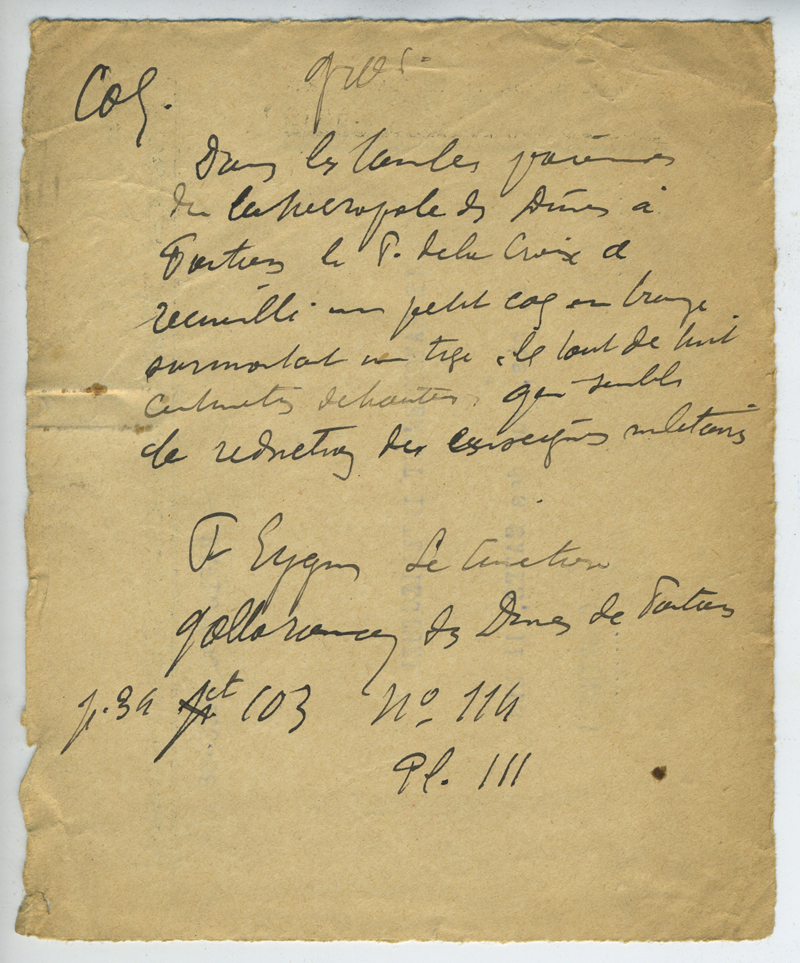 Coq.
Dans les tombes païennes
de la nécropole des Dunes à
Poitiers le P. de la Croix a
recueilli un petit coq en bronze
surmontant une tige, le tout de huit
centimètres de hauteur, qui semble
de réduction des enseignes militaires
F Eygun Le Cimetière
gallo romain des Dunes de Poitiers
p. 34 et 103 No 114
Pl. III